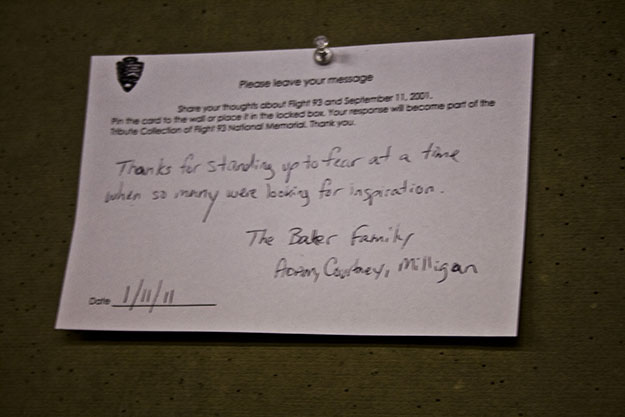 Please leave your message
Share your thoughts about Flight 93 and September 11, 2001.
Pin the card to the wall or place it in the locked box. Your response will become part of the
Tribute Collection of Flight 93 National Memorial. Thank you.
Thanks for standing up to fear at a time
when so many were looking for inspiration.
The Baker Family
Courtney, Milligan
Date 1/11/11